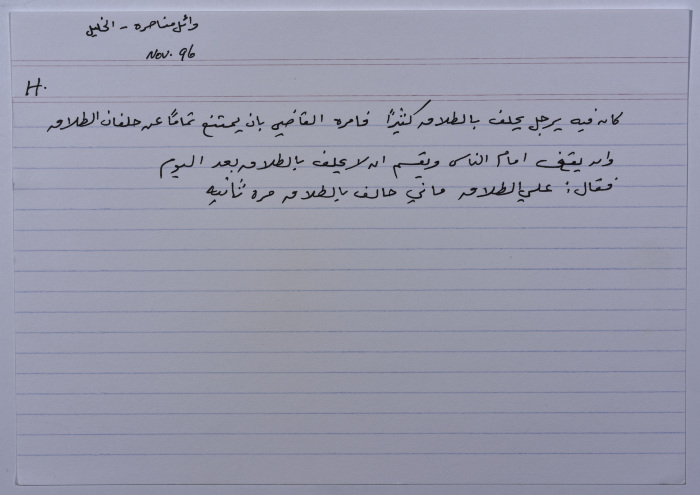 وائل مناصره - الخليل
Nov. 96
H.
كان فيه يرجل يحلف بالطلاق كثيرًا فامره القاضي بان يمتنع تمامًا عن حلفان الطلاق
وان يقف امام الناس ويقسم ان لا يحلف بالطلاق بعد اليوم
فقال: علي الطلاق ماني حالف بالطلاق مره ثانيه